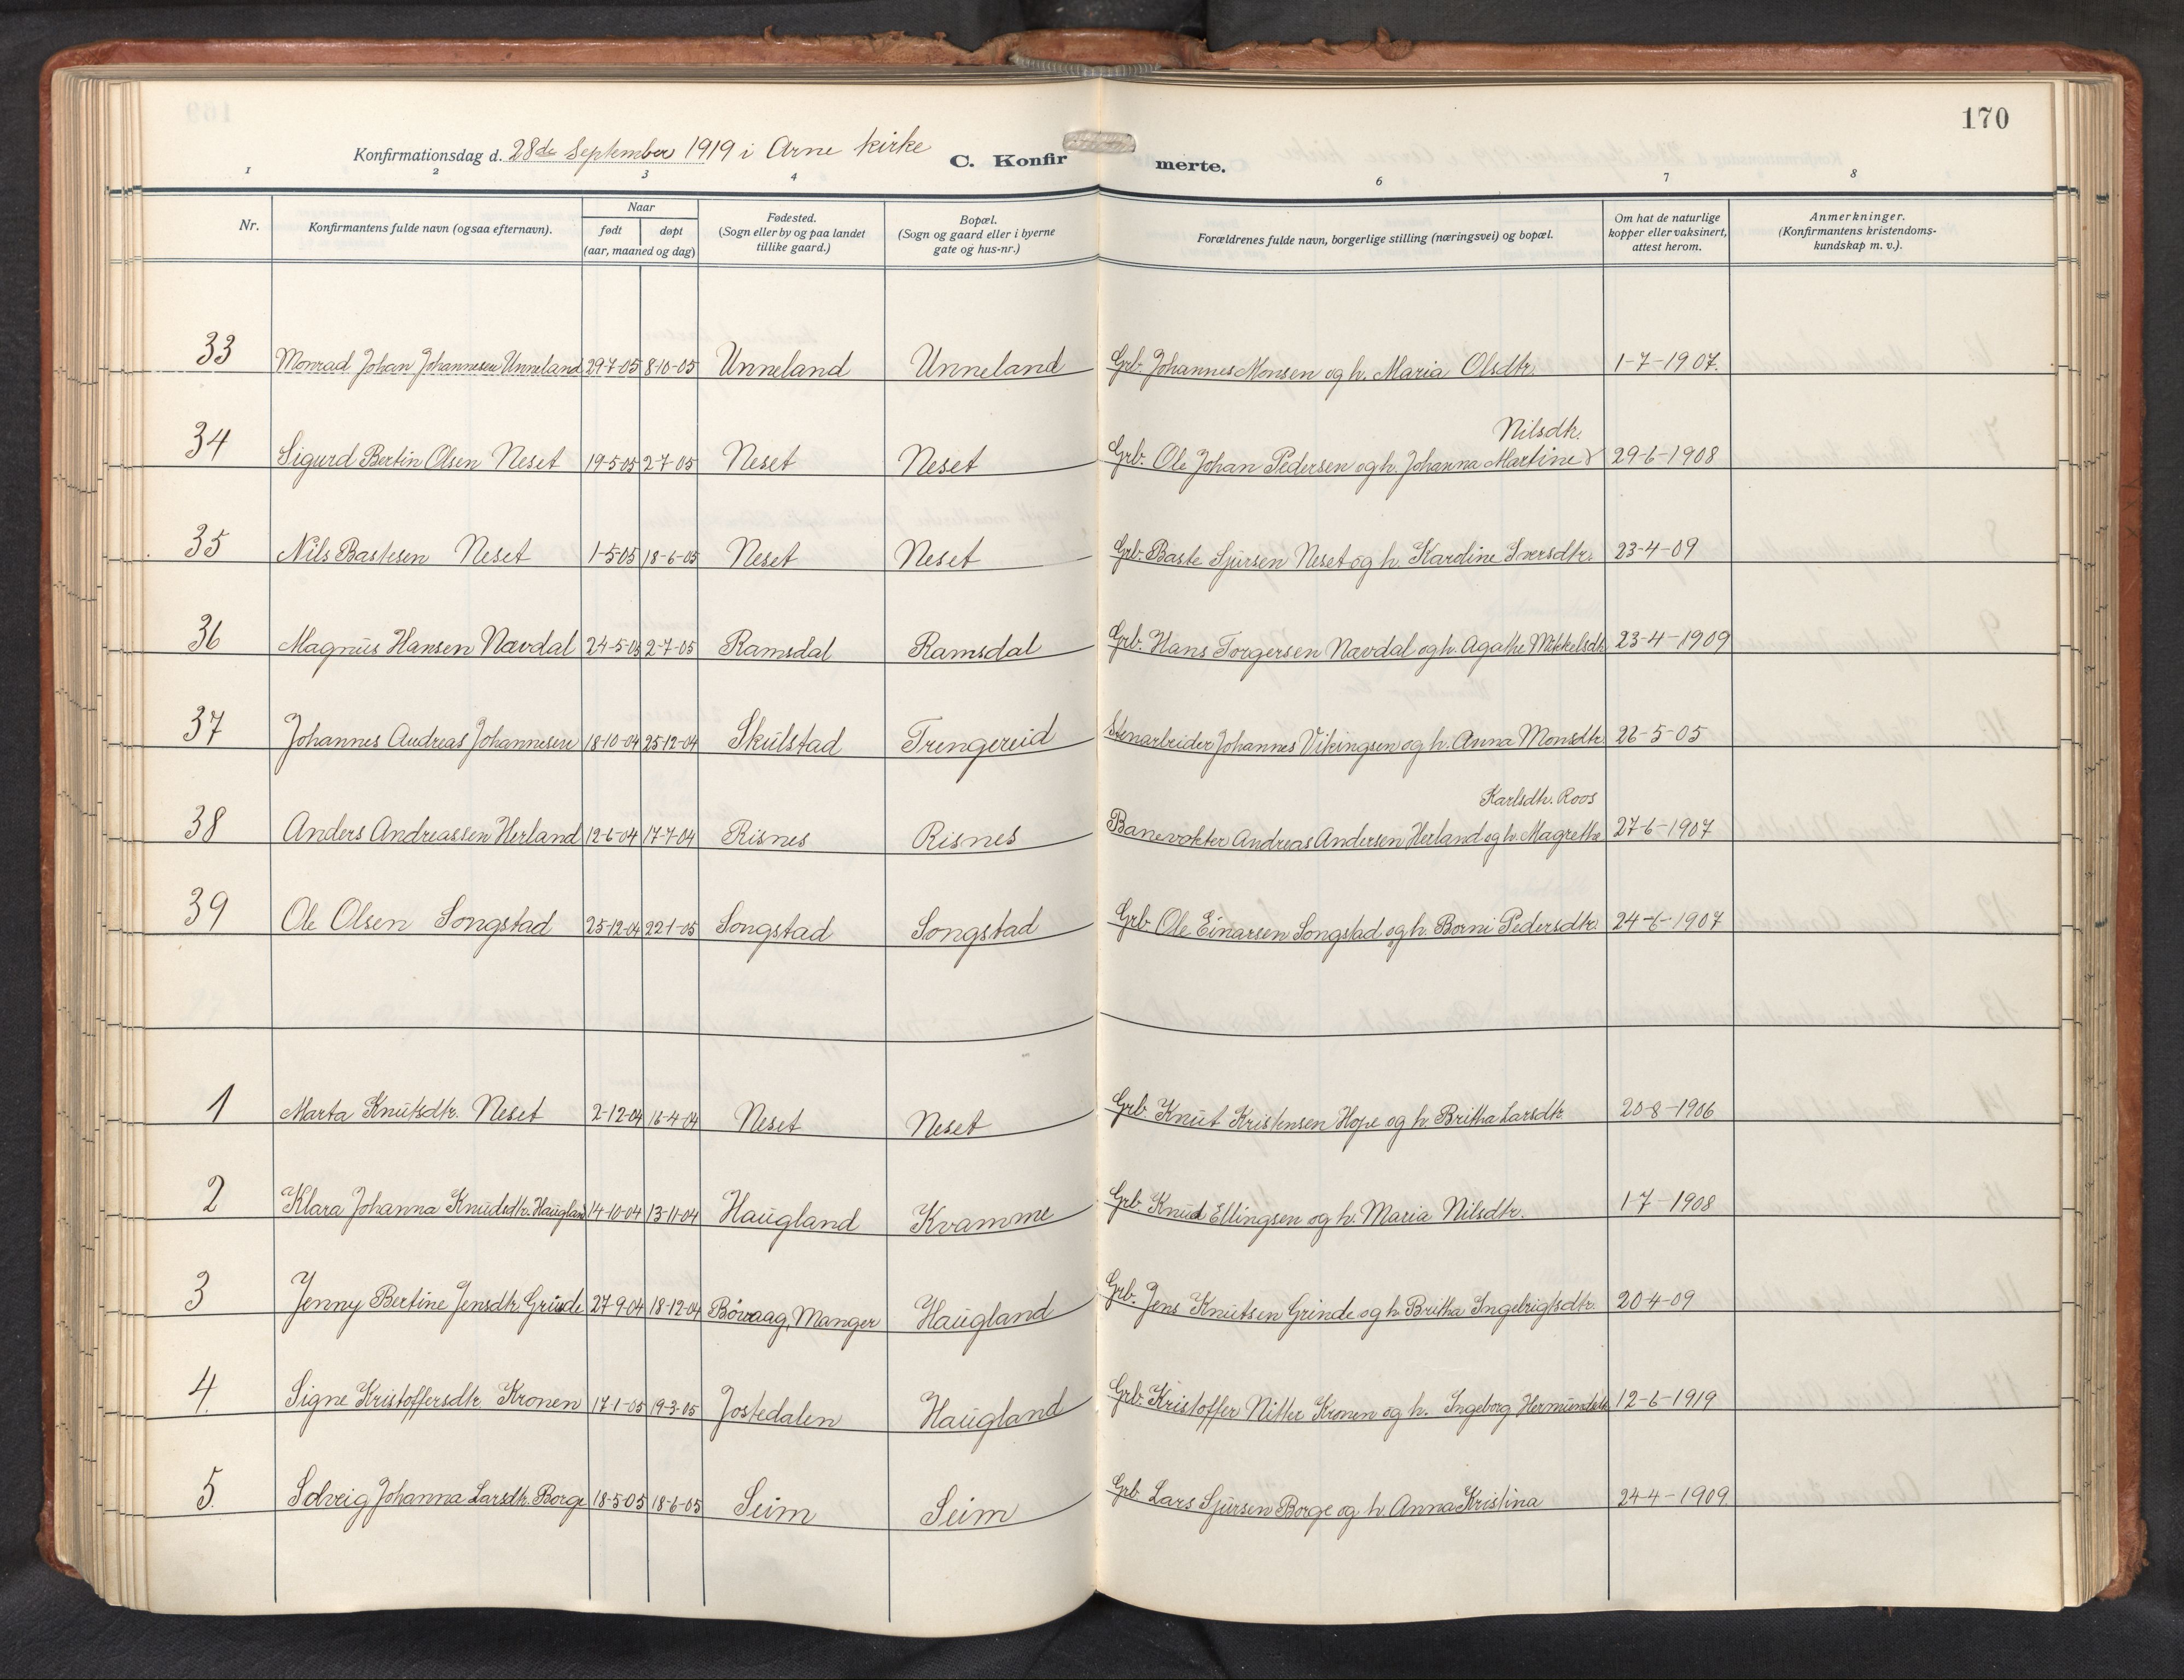 170
Konfirmationsdag d. 28de September 1919 i Arne kirke
C. Konfirmerte.
1 2 3 4 6 7 8
Nr. Konfirmantens fulde navn (ogsaa efternavn). Naar født døpt (aar, maaned og dag) Fødested. (Sogn eller by og paa landet tillike gaard.) Bopæl. (Sogn og gaard eller i byerne gate og hus-nr.) Forældrenes fulde navn, borgerlige stilling (næringsvei) og bopæl. Om hat de naturlige kopper eller vaksinert, attest herom. Anmerkninger. (Konfirmantens kristendoms-kundskap m. v.).
33 Monrad Johan Johannesen Unneland 29-7-05 8-10-05 Unneland Unneland Grb. Johannes Monsen og h. Maria Olsdtr. 1-7-1907.
34 Sigurd Bertin Olsen Neset 19-5-05 2-7-05 Neset Neset Grb. Ole Johan Pedersen og h. Johanna Martine Nilsdtr. 29-6-1908
35 Nils Bastesen Neset 1-5-05 18-6-05 Neset Neset Grb. Baste Sjursen Neset og h. Kardine Iversdtr. 23-4-09
36 Magnus Hansen Nævdal 24-5-05 2-7-05 Ramsdal Ramsdal Grb. Hans Torgersen Nævdal og h. Agathe Mikkelsdtr. 23-4-1909
37 Johannes Andreas Johannesen 18-10-04 25-12-04 Skulstad Trengereid Stenarbeider Johannes Vikingsen og h. Anna Monsdtr. 22-5-05
38 Anders Andreassen Herland 12-6-04 17-7-04 Risnes Risnes Banevokter Andreas Andersen Herland og h. Magrethe Karlsdtr. Roos 27-6-1907
39 Ole Olsen Songstad 25-12-04 22-1-05 Songstad Songstad Grb. Ole Einarsen Songstad og h. Borni Pedersdtr. 24-6-1907
1 Marta Knutsdtr. Neset 2-12-04 16-4-04 Neset Neset Grb. Knut Kristensen Hope og h. Britha Larsdtr. 20-8-1906
2 Klara Johanna Knudsdtr. Haugland 14-10-04 13-11-04 Haugland Kvamme Grb. Knud Ellingsen og h. Maria Nilsdtr. 1-7-1908
3 Jenny Bertine Jensdtr. Grinde 27-9-04 18-12-04 Bövaag, Manger Haugland Grb. Jens Knutsen Grinde og h. Britha Ingebrigtsdtr. 20-4-09
4. Signe Kristoffersdtr. Kronen 17-1-05 19-3-05 Jostedalen Haugland Grb. Kristoffer Nitter Kronen og h. Ingeborg Hermundsdtr. 12-6-1919
5. Solveig Johanna Larsdtr. Borge 18-5-05 18-6-05 Seim Seim Grb. Lars Sjursen Borge og h. Anna Kristina 24-4-1909